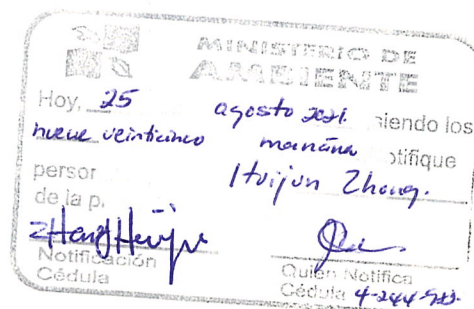 MINISTERIO DE
AMBIENTE
Hoy, 25 agosto 2021. siendo los
nueve veinticinco mañana otifique
person Huijun Zhang.
de la p.
ZHang Huijun
Notificación
Cédula
Quien Notifica
Cédula 4-244-